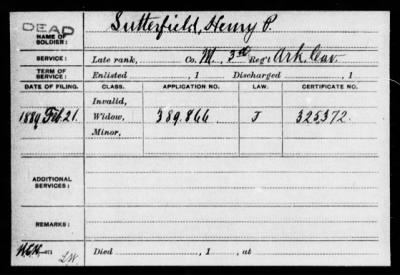 DEAD
NAME OF SOLDIER: Sutterfield, Henry P.
SERVICE: Late rank, Co. M, 3rd Reg't Ark. Cav.
TERM OF SERVICE: Enlisted , 1 Discharged , 1
DATE OF FILING. CLASS. APPLICATION NO. LAW. CERTIFICATE NO.
Invalid,
1889 Feb. 21. Widow, 389.866 J 325372
Minor,
ADDITIONAL SERVICES:
REMARKS:
Died , 1 , at